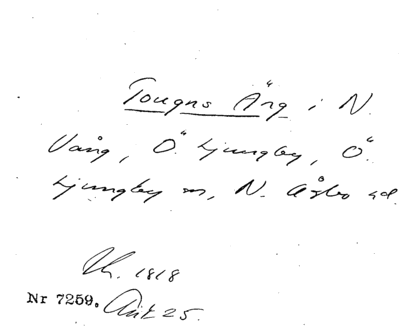 Tougns Äng i N.
Vång, Ö. Ljungby, Ö.
Ljungby sn, N. Åsbo hd.
Uh. 1818
Nr 7259. Akt 25.